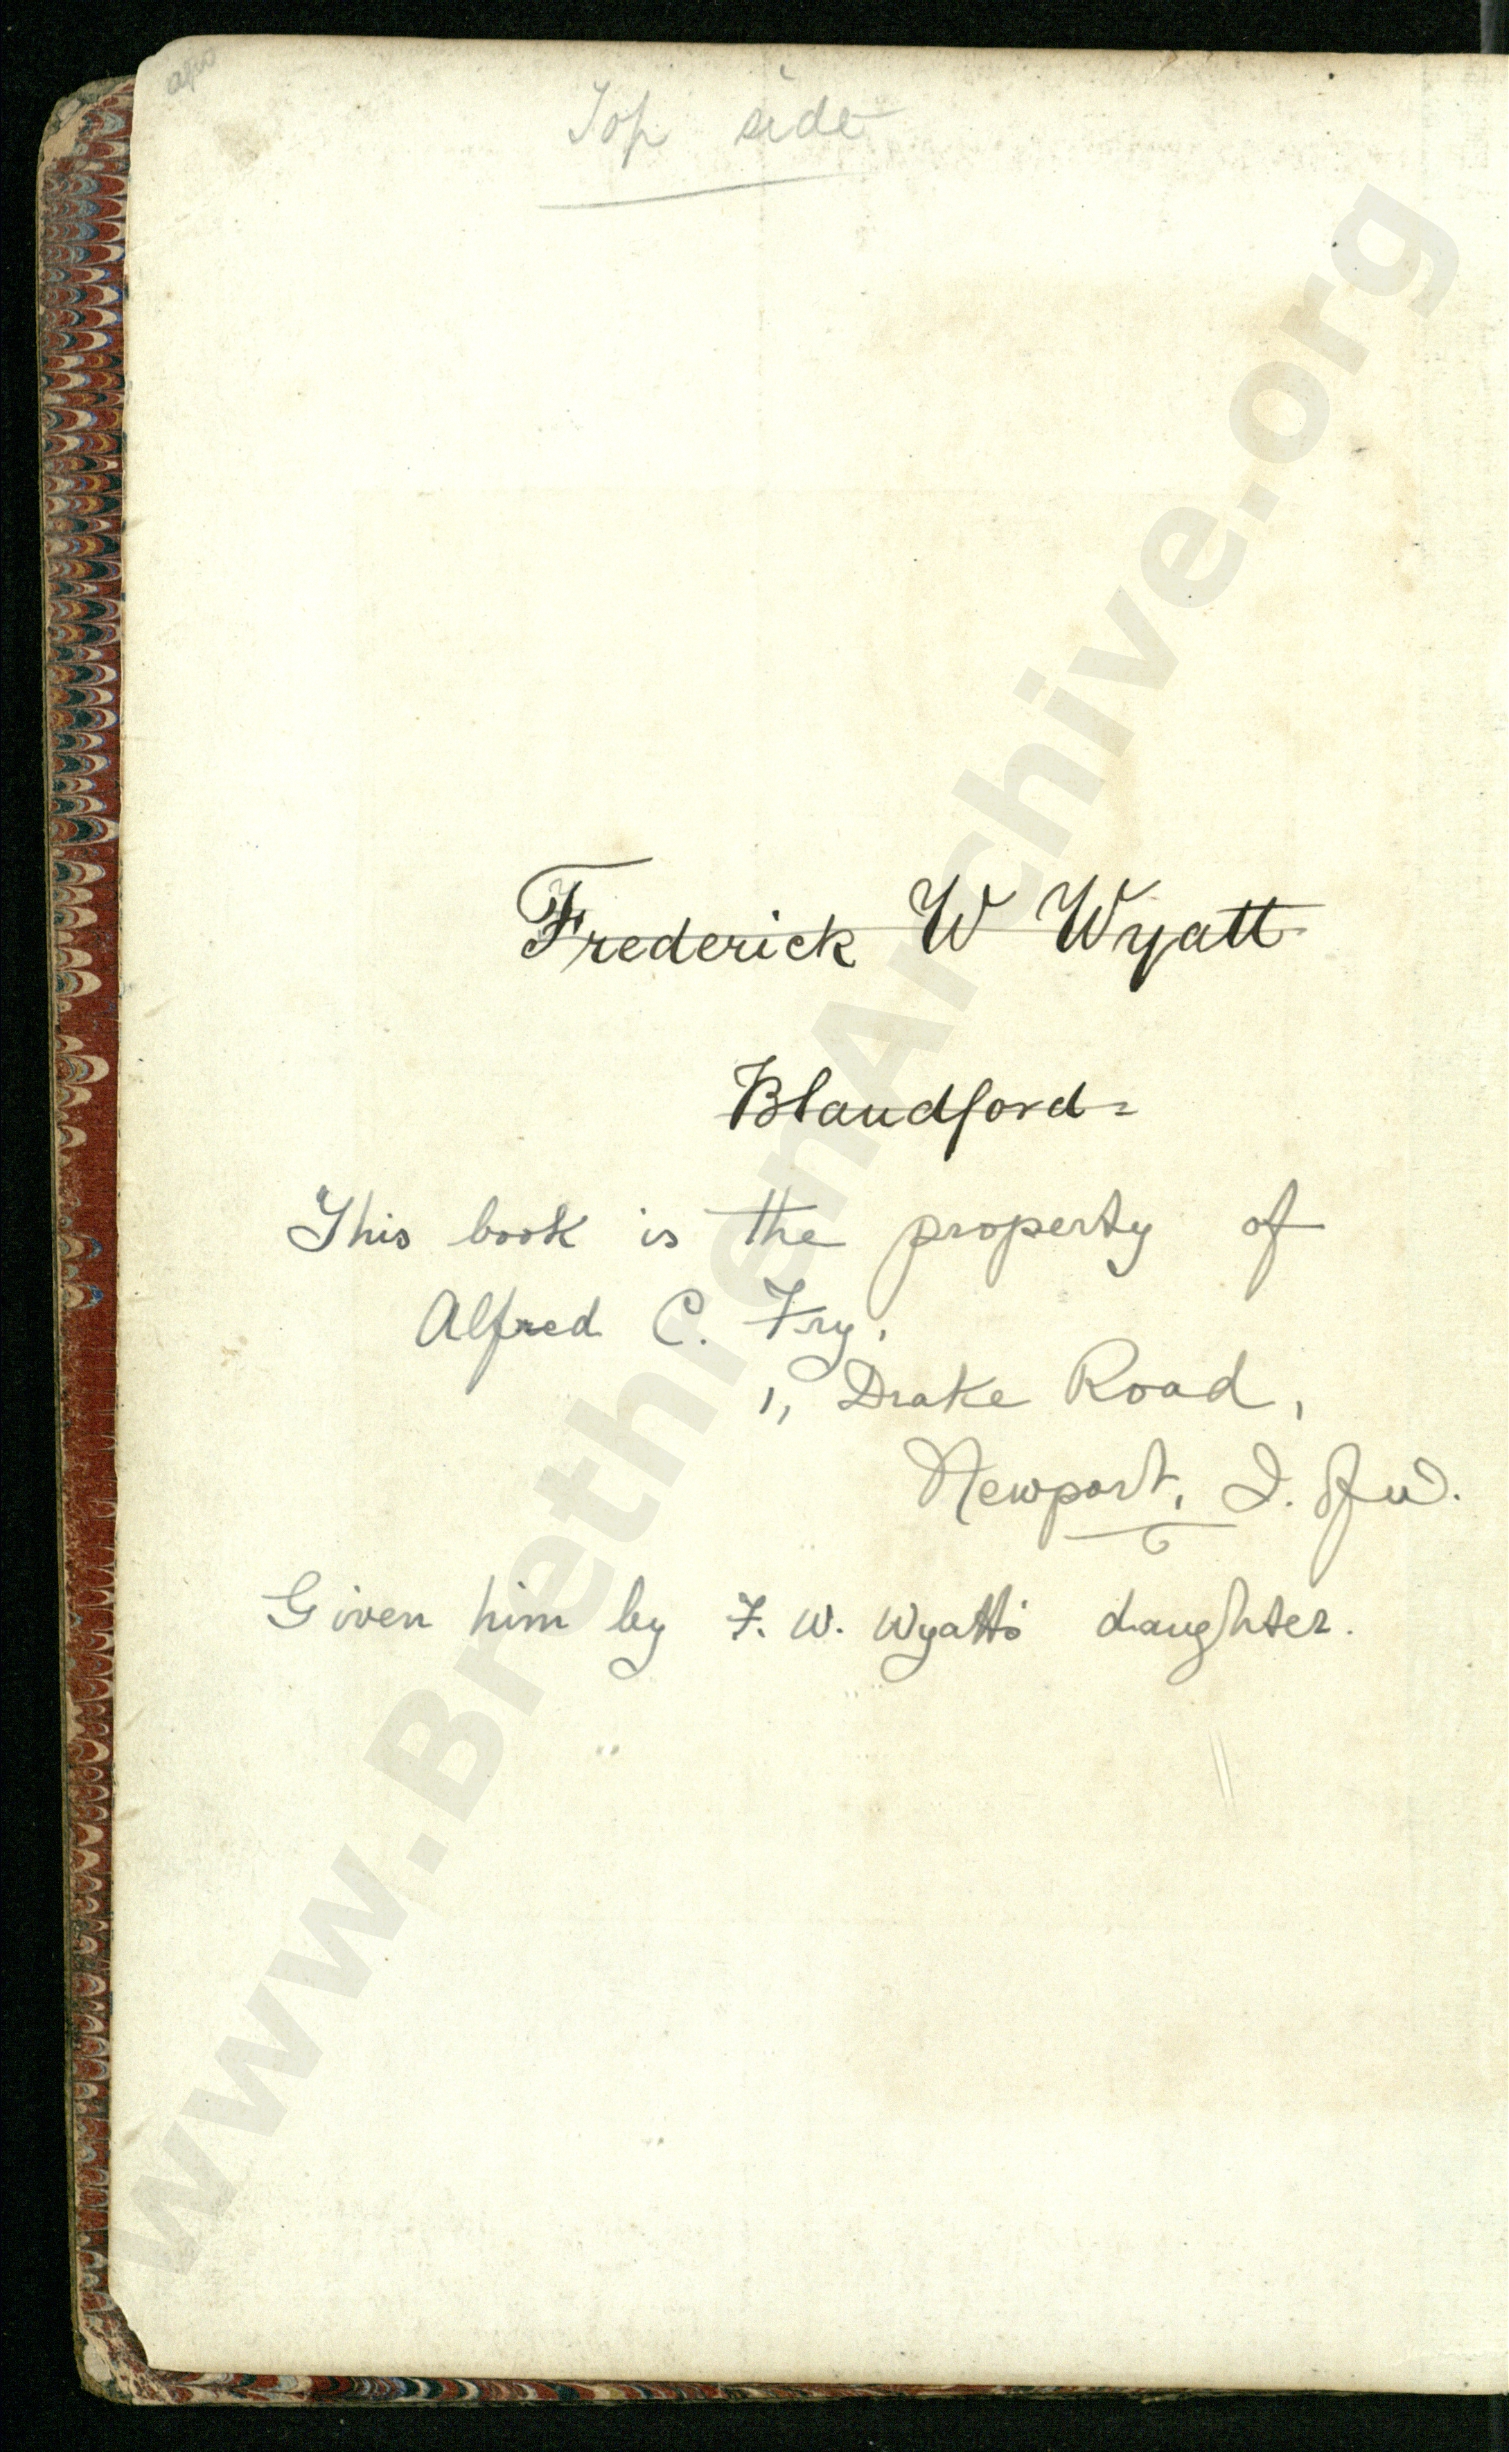 Top side
Frederick W Wyatt
Blandford=
This book is the property of
Alfred C. Fry,
1, Drake Road,
Newport, I. of W.
Given him by F. W. Wyatt's daughter.
www.BrethrenArchive.org